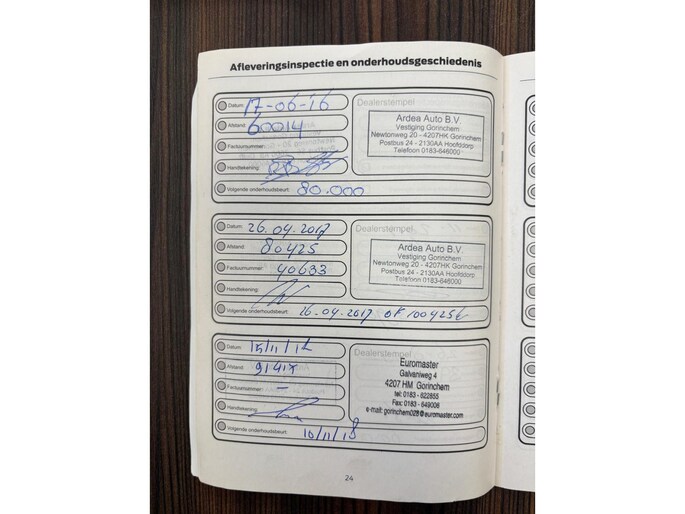 Afleveringsinspectie en onderhoudsgeschiedenis
Datum: 17-06-16
Afstand: 60014
Factuurnummer:
Handtekening:
Volgende onderhoudsbeurt: 80.000
Dealerstempel
Ardea Auto B.V.
Vestiging Gorinchem
Newtonweg 20 - 4207HK Gorinchem
Postbus 24 - 2130AA Hoofddorp
Telefoon 0183-646000
Datum: 26.04.2017
Afstand: 80425
Factuurnummer: 40633
Handtekening:
Volgende onderhoudsbeurt: 26.04.2017 OF 100425
Dealerstempel
Ardea Auto B.V.
Vestiging Gorinchem
Newtonweg 20 - 4207HK Gorinchem
Postbus 24 - 2130AA Hoofddorp
Telefoon 0183-646000
Datum:
Afstand:
Factuurnummer: -
Handtekening:
Volgende onderhoudsbeurt: 10/11/18
Dealerstempel
Euromaster
Galvaniweg 4
4207 HM Gorinchem
tel: 0183 - 622855
Fax: 0183 - 649006
e-mail: gorinchem028@euromaster.com
24